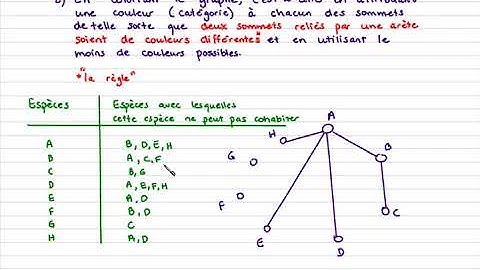 b) En coloriant le graphe, c'est-à-dire en attribuant
une couleur (catégorie) à chacun des sommets
de telle sorte que deux sommets reliés par une arête
soient de couleurs différentes" et en utilisant le
moins de couleurs possibles.
*"la règle"
Espèces Espèces avec lesquelles
cette espèce ne peut pas cohabiter
A B, D, E, H
B A, C, F
C B, G
D A, E, F, H
E A, D
F B, D
G C
H A, D
A
H
B
G
F
C
E
D